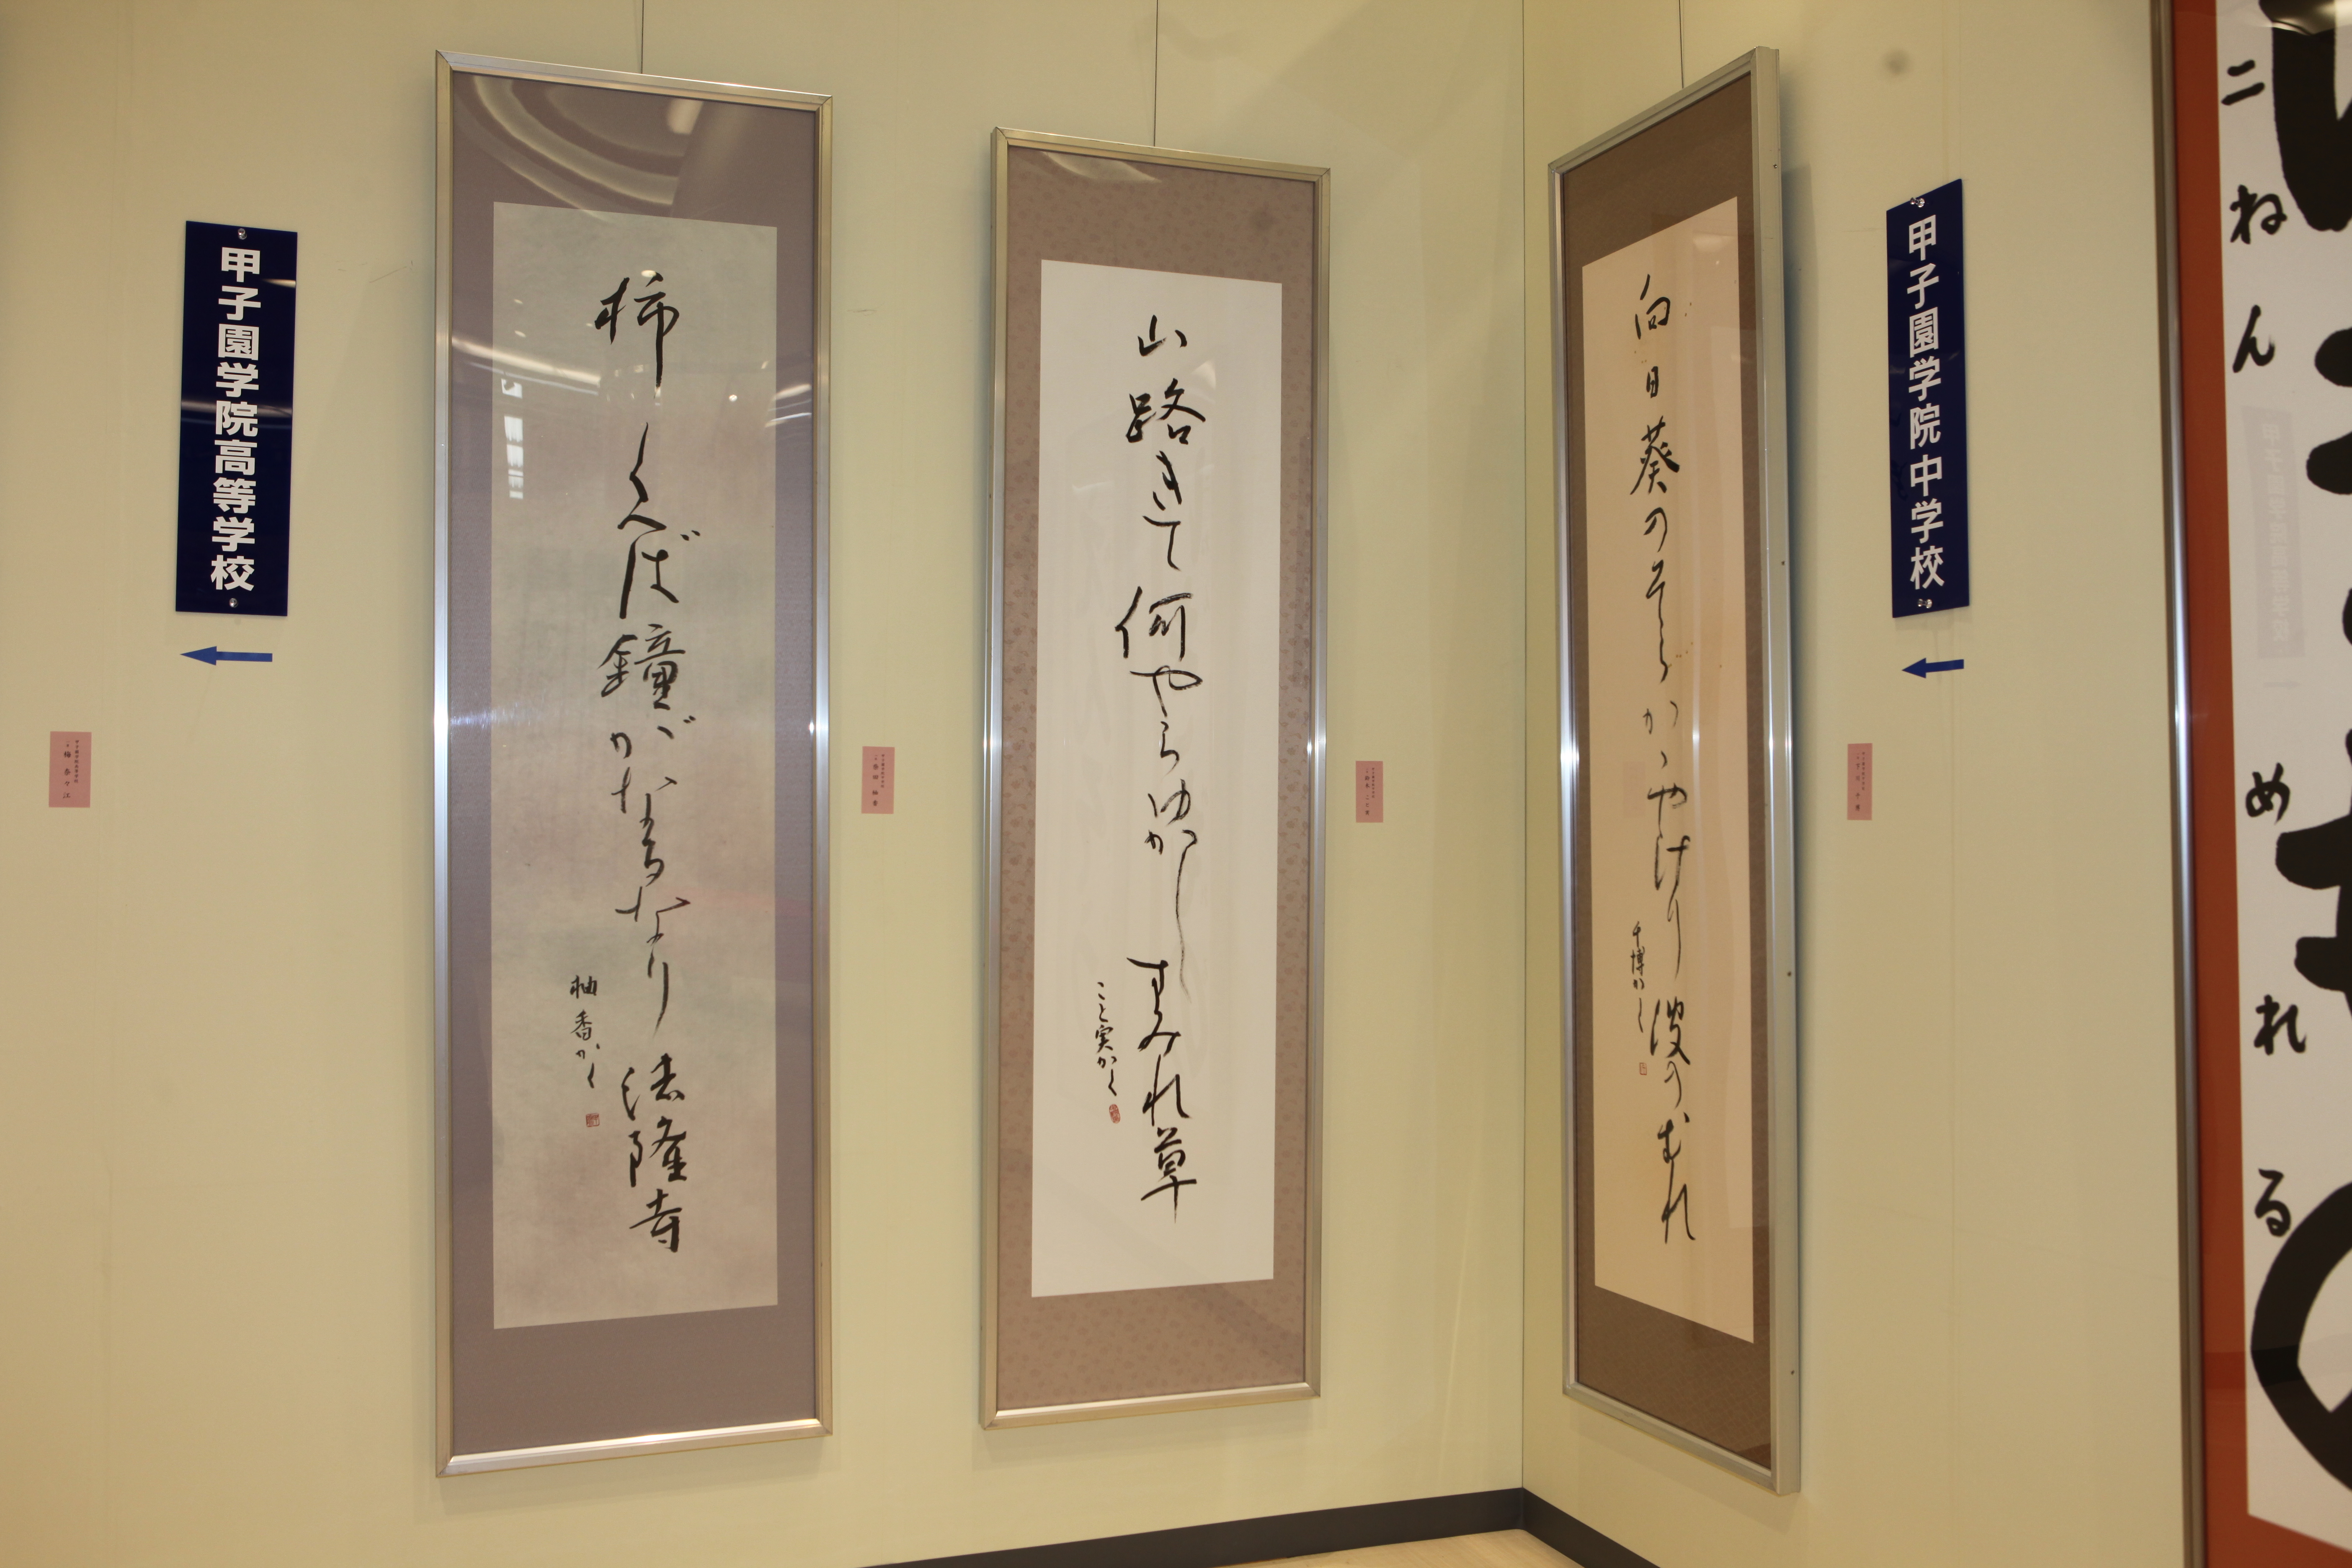 甲子園学院高等学校
柿くへば鐘がなるなり法隆寺
柚香かく
山路きて何やらゆかしすみれ草
こと実かく
向日葵のそらかゝやけり波のむれ
千博かく
甲子園学院中学校
二ねん
めれる